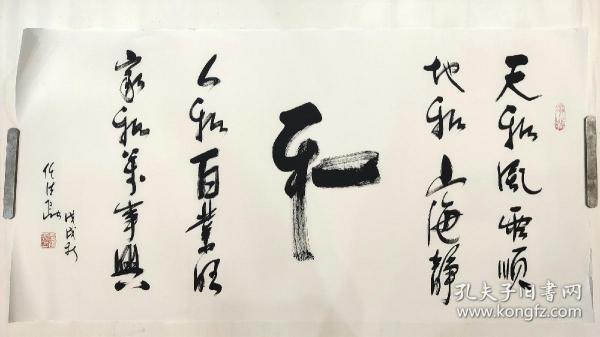 天和風雲順
地和山海靜
和
人和百業旺
家和萬事興
戊戌秋
孔夫子旧书网
www.kongfz.com